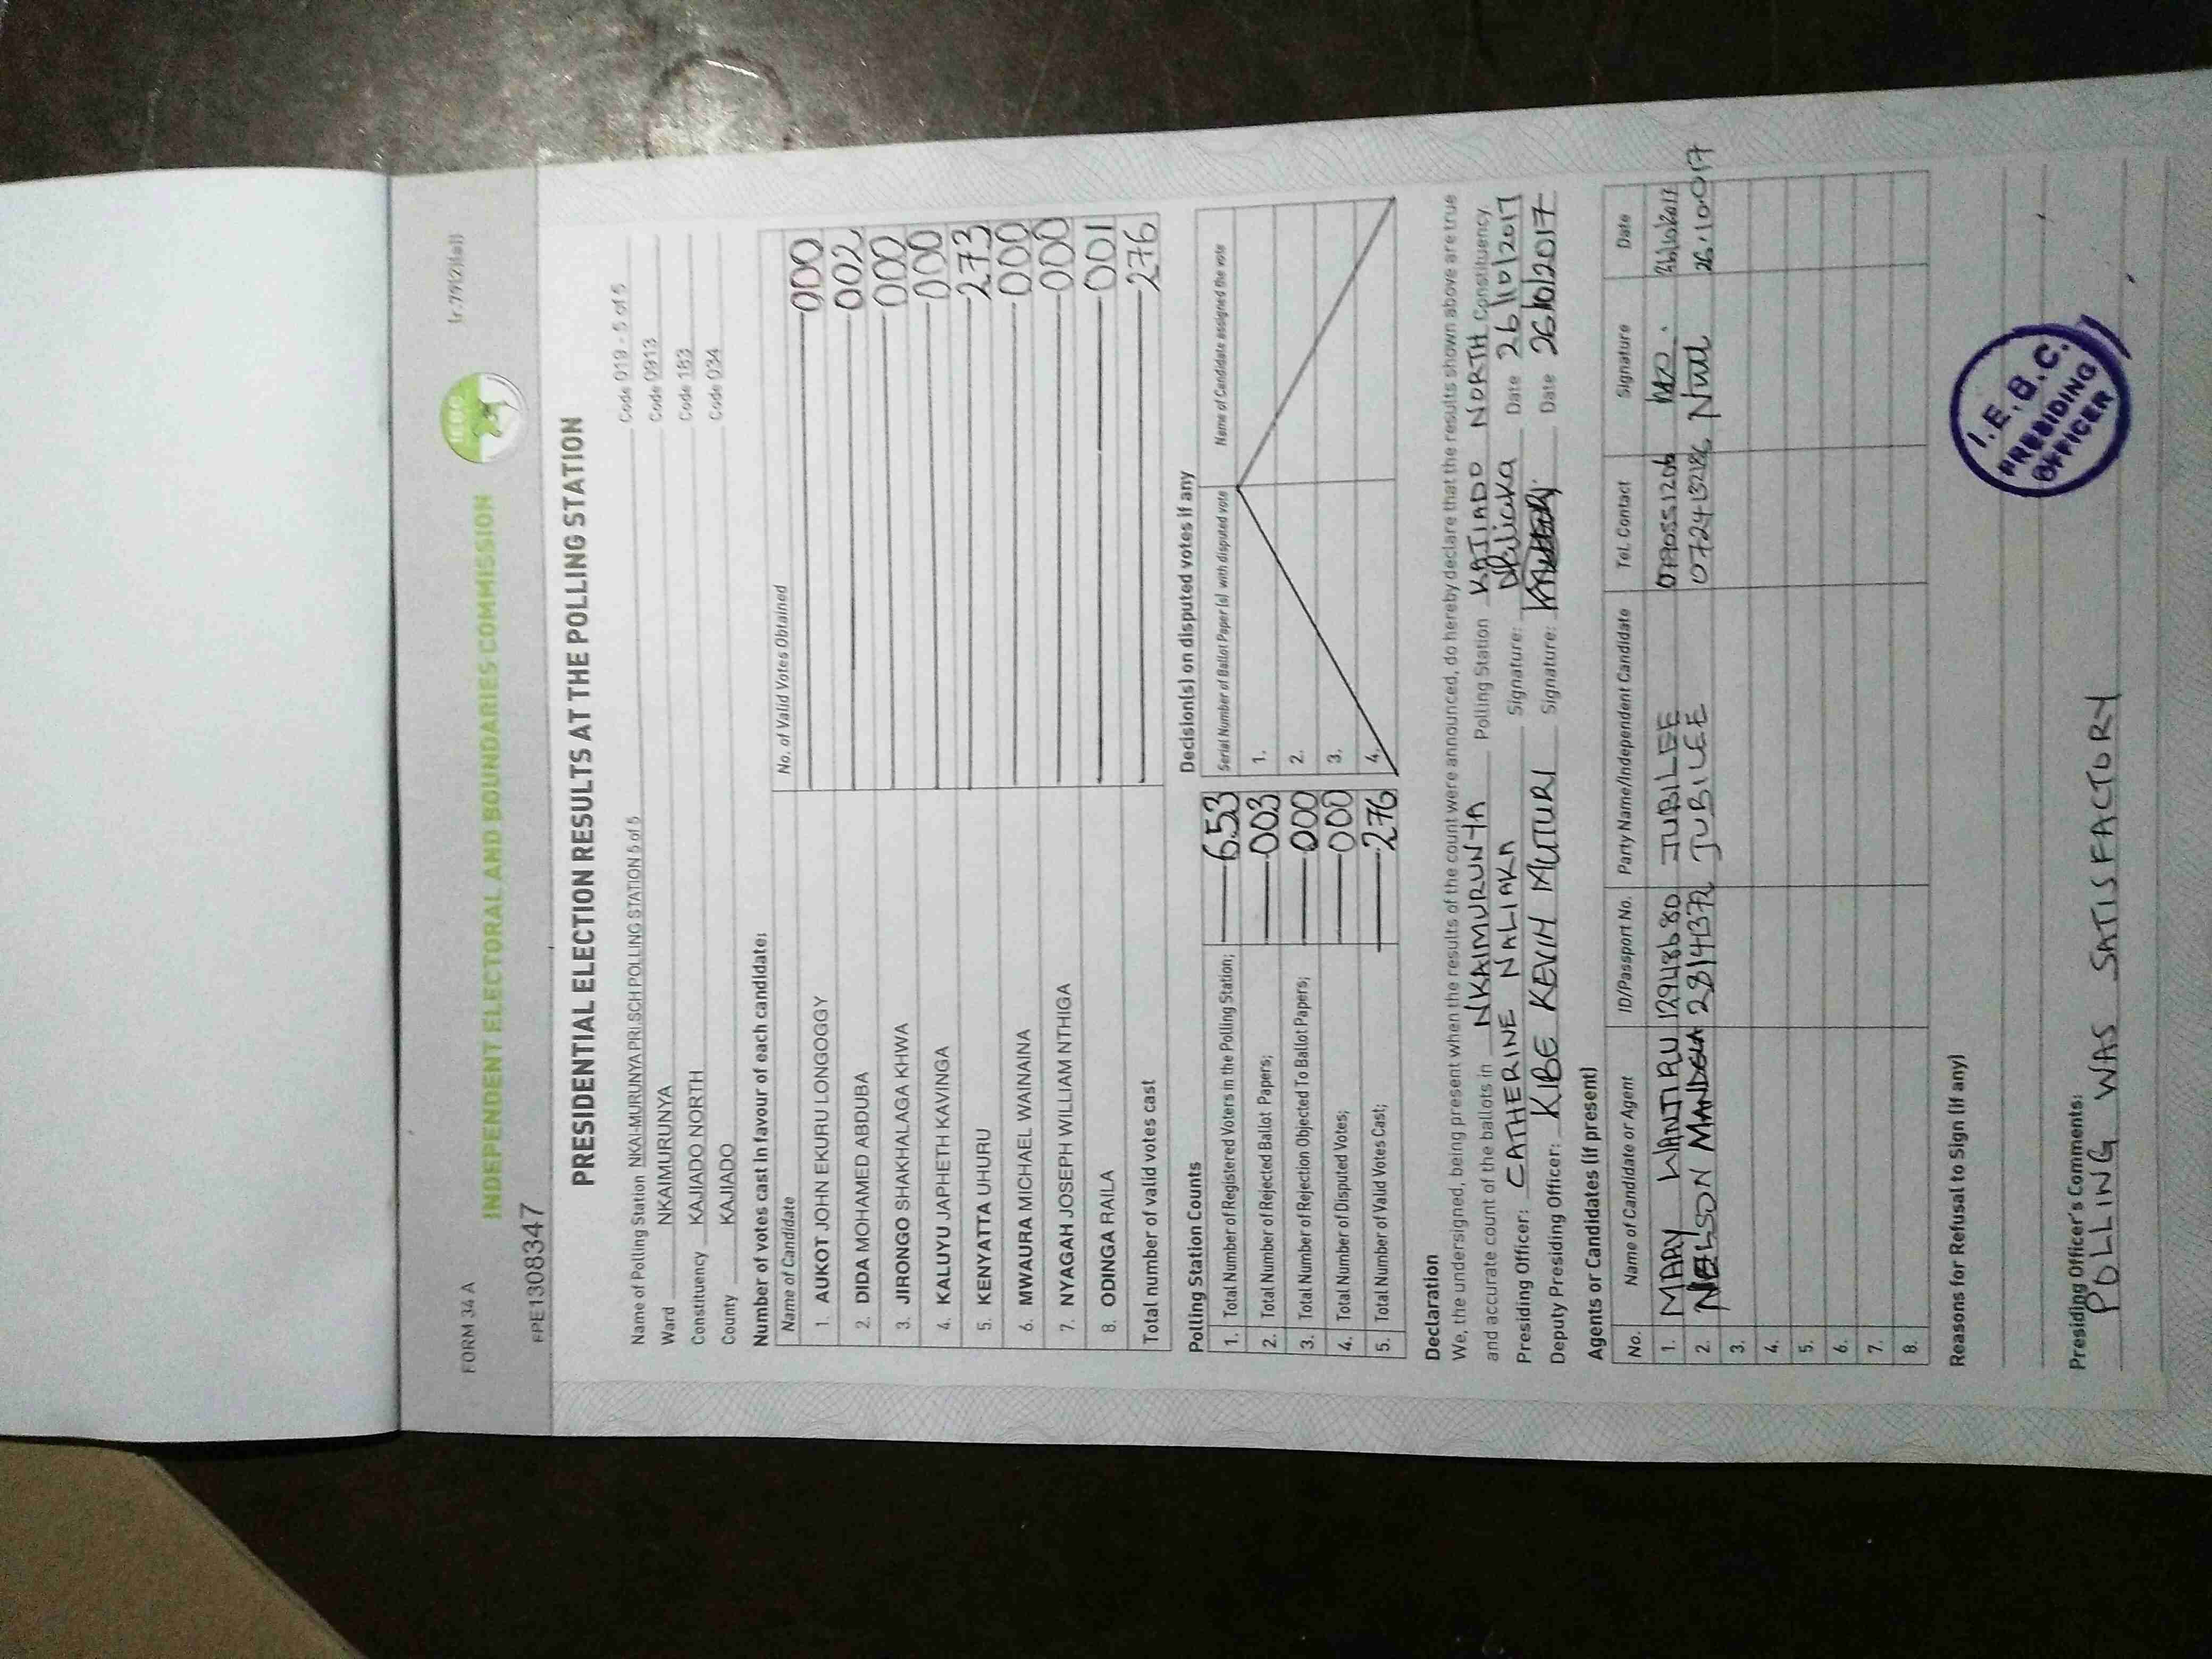 FORM 34 A
(r.79(2)(a))
INDEPENDENT ELECTORAL AND BOUNDARIES COMMISSION
IEBC
EPE1308347
PRESIDENTIAL ELECTION RESULTS AT THE POLLING STATION
Name of Polling Station NKAI-MURUNYA PRI SCH POLLING STATION 5 of 5 Code 019 - 5 of 5
Ward NKAIMURUNYA Code 0913
Constituency KAJIADO NORTH Code 183
County KAJIADO Code 034
Number of votes cast in favour of each candidate:
Name of Candidate No. of Valid Votes Obtained
1. AUKOT JOHN EKURU LONGOGGY 000
2. DIDA MOHAMED ABDUBA 002
3. JIRONGO SHAKHALAGA KHWA 000
4. KALUYU JAPHETH KAVINGA 000
5. KENYATTA UHURU 273
6. MWAURA MICHAEL WAINAINA 000
7. NYAGAH JOSEPH WILLIAM NTHIGA 000
8. ODINGA RAILA 001
Total number of valid votes cast 276
Polling Station Counts
1. Total Number of Registered Voters in the Polling Station; 653
2. Total Number of Rejected Ballot Papers; 003
3. Total Number of Rejection Objected To Ballot Papers; 000
4. Total Number of Disputed Votes; 000
5. Total Number of Valid Votes Cast; 276
Decision(s) on disputed votes if any
Serial Number of Ballot Paper (s) with disputed vote Name of Candidate assigned the vote
1.
2.
3.
4.
Declaration
We, the undersigned, being present when the results of the count were announced, do hereby declare that the results shown above are true
and accurate count of the ballots in NKAIMURUNYA Polling Station KAJIADO NORTH Constituency.
Presiding Officer: CATHERINE NALIAKA Signature: Naliaka Date 26/10/2017
Deputy Presiding Officer: KIBE KEVIN MUTURI Signature: Date 26/10/2017
Agents or Candidates (if present)
No. Name of Candidate or Agent ID/Passport No. Party Name/Independent Candidate Tel. Contact Signature Date
1. MARY WANJIRU 12948680 JUBILEE 26/10/2017
2. NELSON MANDELA JUBILEE
3.
4.
5.
6.
7.
8.
Reasons for Refusal to Sign (if any)
I.E.B.C.
PRESIDING
OFFICER
Presiding Officer's Comments:
POLLING WAS SATISFACTORY